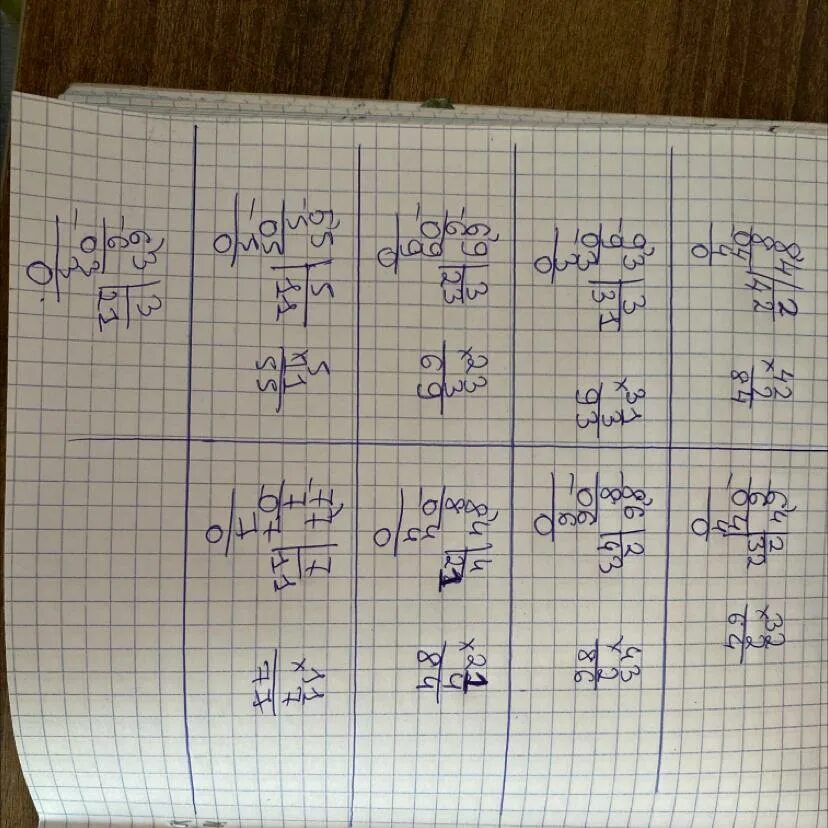 84|2
8 |42
04
4
0
42
×2
84
64|2
-6 |32
04
4
0
32
×2
64
93|3
-9 |31
03
-3
0
31
×3
93
86|2
-8 |43
06
-6
0
43
×2
86
69|3
-6 |23
09
-9
0
23
×3
69
84|4
8 |21
04
4
0
21
×4
84
55|5
-5 |11
05
-5
0
5
×11
55
77|7
-7 |11
07
7
0
11
×7
77
63|3
-6 |21
03
-3
0